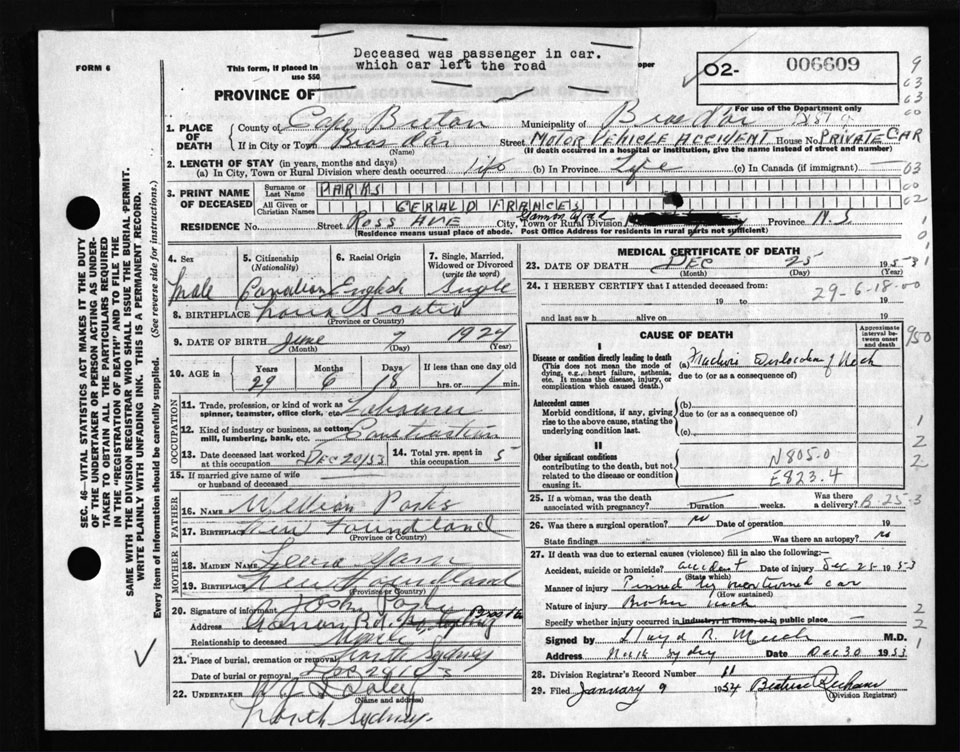 Deceased was passenger in car.
which car left the road
FORM 6
This form, if placed in
oper
use 550
O2- 006609
PROVINCE OF
NOVA SCOTIA-REGISTRATION OF DEATH
For use of the Department only
1. PLACE OF DEATH
County of Cape Breton Municipality of Bras d'Or
If in City or Town Bras d'Or Street MOTOR VEHICLE ACCIDENT House No. PRIVATE CAR
(Name) (If death occurred in a hospital or institution, give the name instead of street and number)
2. LENGTH OF STAY (in years, months and days)
(a) In City, Town or Rural Division where death occurred life (b) In Province life (c) In Canada (if immigrant)
3. PRINT NAME OF DECEASED
Surname or Last Name PARKS
All Given or Christian Names GERALD FRANCES
RESIDENCE No. Street ROSS AVE City, Town or Rural Division Province N.S
(Residence means usual place of abode. Post Office Address for residents in rural parts not sufficient)
4. Sex Male
5. Citizenship (Nationality) Canadian
6. Racial Origin English
7. Single, Married, Widowed or Divorced (write the word) Single
8. BIRTHPLACE Nova Scotia
(Province or Country)
9. DATE OF BIRTH June 7 1924
(Month) (Day) (Year)
10. AGE in Years Months Days If less than one day old
29 6 18 hrs. or min.
OCCUPATION
11. Trade, profession, or kind of work as spinner, teamster, office clerk, etc. Labourer
12. Kind of industry or business, as cotton-mill, lumbering, bank, etc. Construction
13. Date deceased last worked at this occupation DEC 20/53 14. Total yrs. spent in this occupation 5
15. If married give name of wife or husband of deceased
FATHER
16. NAME William Parks
17. BIRTHPLACE New Foundland
(Province or Country)
MOTHER
18. MAIDEN NAME
19. BIRTHPLACE New Foundland
(Province or Country)
20. Signature of informant
Address
Relationship to deceased
21. Place of burial, cremation or removal North Sydney
Date of burial or removal
22. UNDERTAKER
(Name and address)
North Sydney.
MEDICAL CERTIFICATE OF DEATH
23. DATE OF DEATH DEC 25 1953
(Month) (Day) (Year)
24. I HEREBY CERTIFY that I attended deceased from:
19 to 19
29-6-18-00
and last saw h alive on 19
CAUSE OF DEATH
Approximate interval between onset and death
I
Disease or condition directly leading to death (a) Dislocation of Neck
(This does not mean the mode of dying, e.g., heart failure, asthenia, etc. It means the disease, injury, or complication which caused death.)
due to (or as a consequence of)
Antecedent causes
Morbid conditions, if any, giving rise to the above cause, stating the underlying condition last.
(b)
due to (or as a consequence of)
(c)
II
Other significant conditions
contributing to the death, but not related to the disease or condition causing it.
N805.0
E823.4
25. If a woman, was the death associated with pregnancy? Duration weeks. Was there a delivery?
B-25-3
26. Was there a surgical operation? no Date of operation 19
State findings Was there an autopsy? no
27. If death was due to external causes (violence) fill in also the following:
Accident, suicide or homicide? accident Date of injury Dec 25 1953
(State which)
Manner of injury Pinned by overturned car
(How sustained)
Nature of injury Broken neck
Specify whether injury occurred in industry, in home, or in public place
Signed by Lloyd R. M.D.
Address North Sydney Date Dec 30 1953
28. Division Registrar's Record Number 11
29. Filed January 9 1954 Beatrice
(Division Registrar)
SEC. 46—VITAL STATISTICS ACT MAKES IT THE DUTY OF THE UNDERTAKER OR PERSON ACTING AS UNDERTAKER TO OBTAIN ALL THE PARTICULARS REQUIRED IN THE "REGISTRATION OF DEATH" AND TO FILE THE SAME WITH THE DIVISION REGISTRAR WHO SHALL ISSUE THE BURIAL PERMIT.
WRITE PLAINLY WITH UNFADING INK. THIS IS A PERMANENT RECORD.
Every item of information should be carefully supplied. (See reverse side for instructions.)